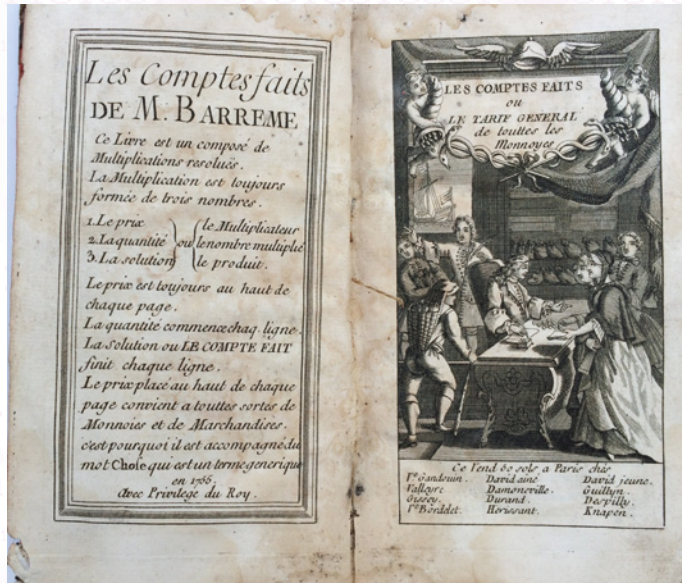 Les Comptes faits
DE M. BARREME
Ce Livre est un composé de
Multiplications resoluës.
La Multiplication est toujours
formée de trois nombres.
1. Le prix
2. La quantité
3. La solution
ou
le Multiplicateur
le nombre multiplié
le produit.
Le prix est toujours au haut de
chaque page.
La quantité commence chaq. ligne.
La solution ou LE COMPTE FAIT
finit chaque ligne.
Le prix placé au haut de chaque
page convient a touttes sortes de
Monnoies et de Marchandises.
c'est pourquoi il est accompagné du
mot Chose qui est un terme generique
en 1755.
Avec Privilege du Roy.
LES COMPTES FAITS
ou
LE TARIF GENERAL
de touttes les
Monnoyes
Ce Vend 60 sols a Paris chés
Ve Gandouin. David ainé David jeune.
Valleyre Damonsville. Guillyn.
Gissey. Durand. Despilly.
Ve Bordelet. Herissant. Knapen.